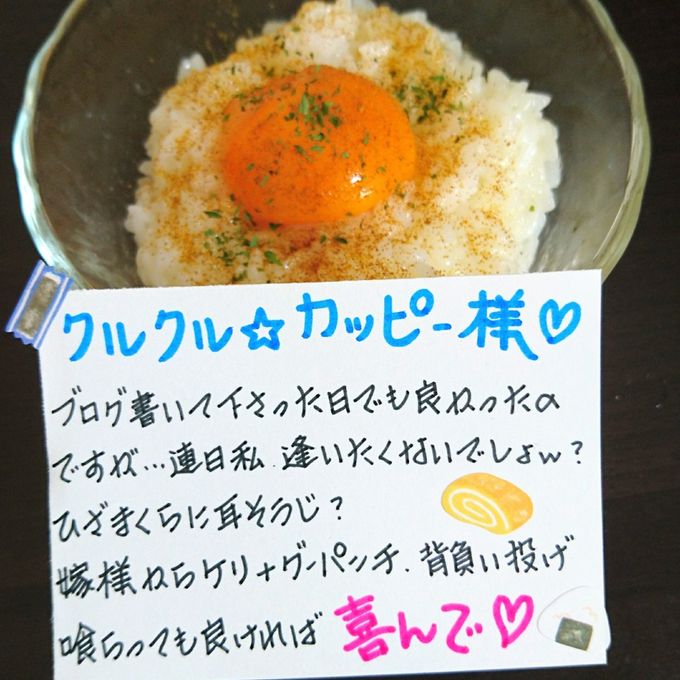 クルクル☆カッピー様♡
ブログ書いて下さった日でも良かったの
ですが…連日私、逢いたくないでしょw?
ひざまくらに耳そうじ?
嫁様からケリ+グーパンチ、背負い投げ
喰らっても良ければ 喜んで♡